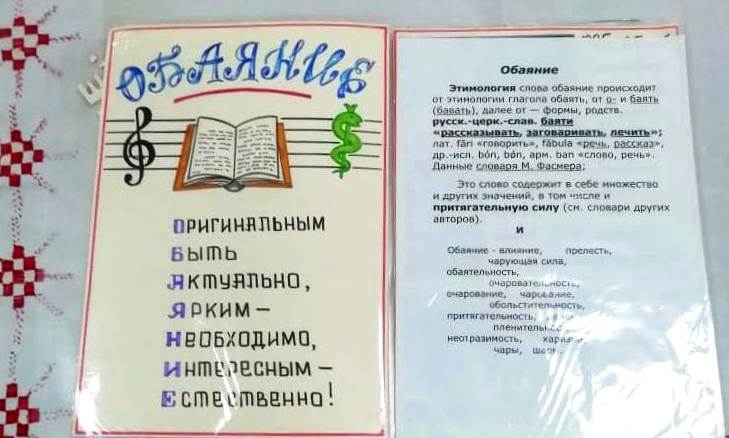 ОБАЯНИЕ
ОРИГИНАЛЬНЫМ
БЫТЬ
АКТУАЛЬНО,
ЯРКИМ –
НЕОБХОДИМО,
ИНТЕРЕСНЫМ –
ЕСТЕСТВЕННО!
Обаяние
Этимология слова обаяние происходит
от этимологии глагола обаять, от о- и баять
(бавать), далее от — формы, родств.
русск.-церк.-слав. баяти
«рассказывать, заговаривать, лечить»;
лат. fāri «говорить», fābula «речь, рассказ»,
др.-исл. bón, bøn, арм. ban «слово, речь».
Данные словаря М. Фасмера;
Это слово содержит в себе множество
и других значений, в том числе и
притягательную силу (см. словари других
авторов).
И
Обаяние - влияние, прелесть,
чарующая сила,
обаятельность,
очаровательность,
очарование, чарование,
обольстительность,
притягательность,
пленительность
неотразимость, харизма,
чары, шарм.